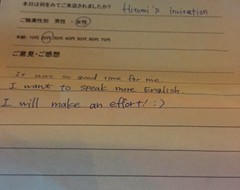 本日は何をみてご来店されましたか？ Hiromi's invitation
ご職業性別 男性・女性
年齢 10代 20代 30代 40代 50代 60代 70代
ご意見・ご感想
It was so good time for me.
I want to speak more English.
I will make an effort! :)